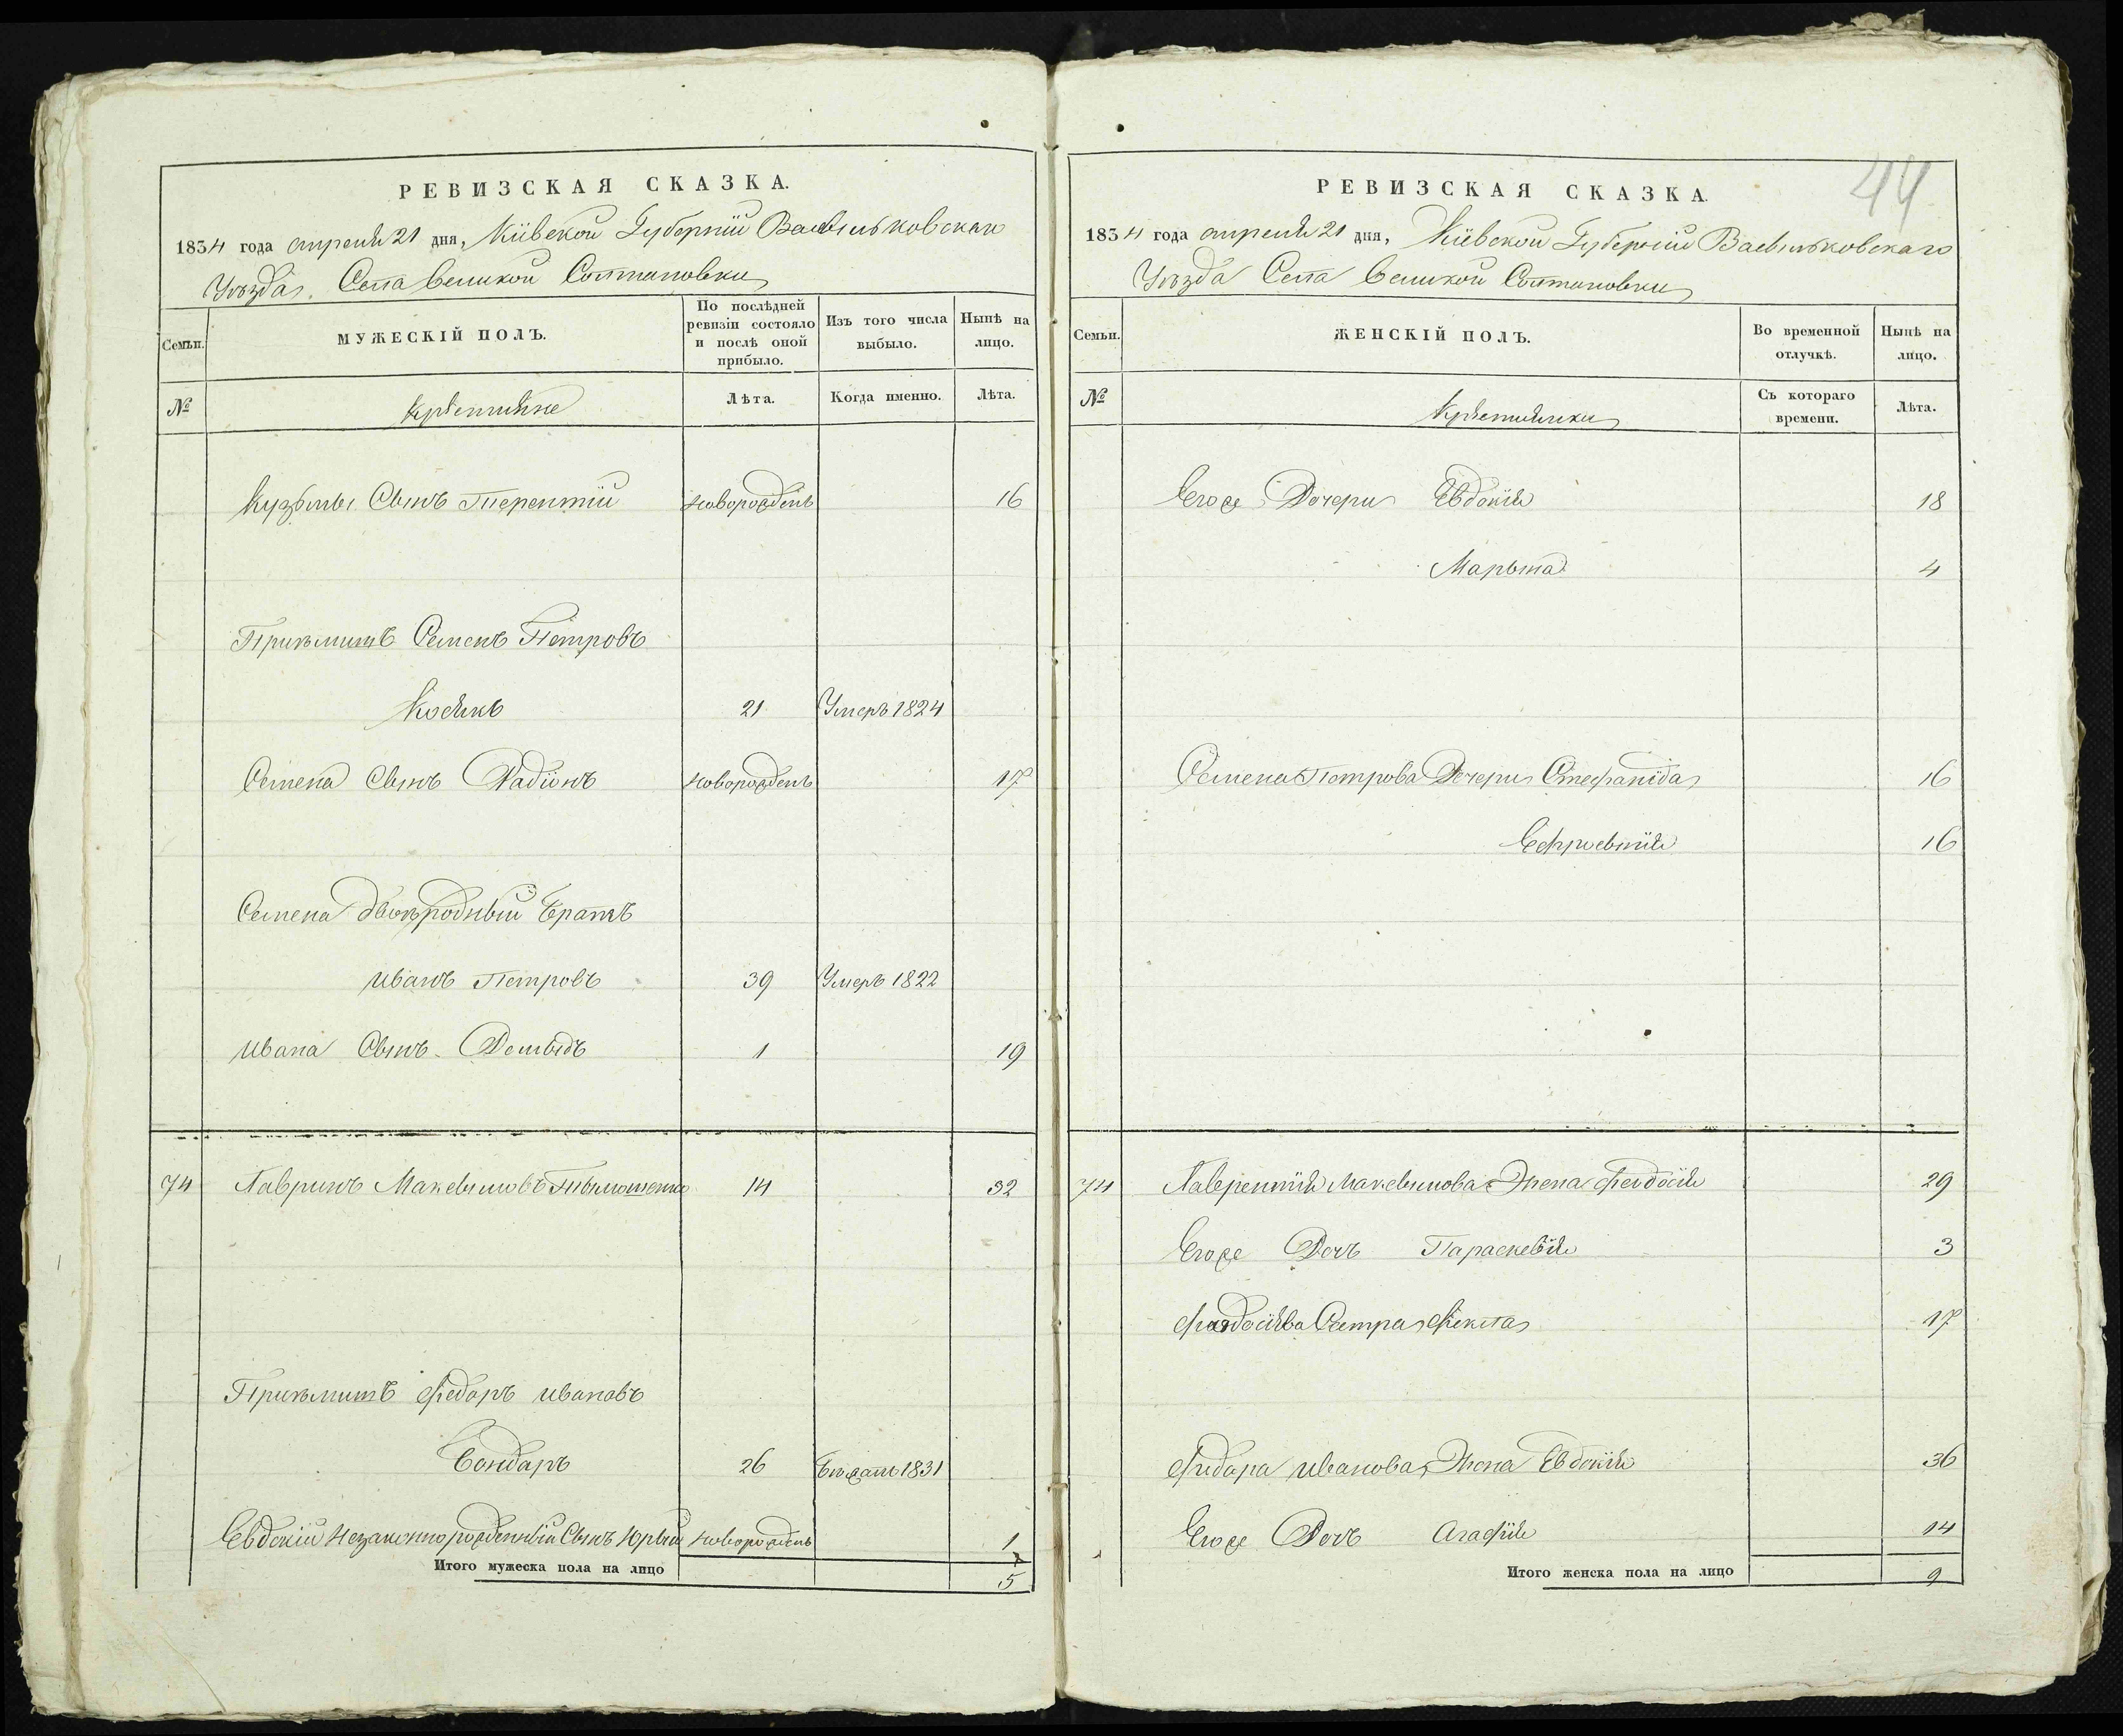 РЕВИЗСКАЯ СКАЗКА.
1834 года апреля 21 дня, Кіевской Губерніи Васильковскаго
Уѣзда. Села Великой Солтановки
Семьи.
МУЖЕСКІЙ ПОЛЪ.
По послѣдней ревизіи состояло и послѣ оной прибыло.
Изъ того числа выбыло.
Нынѣ на лицо.
№
Крестьяне
Лѣта.
Когда именно.
Лѣта.
Кузьмы Сынъ Терентій новорожденъ 16
Приѣмишъ Семенъ Петровъ
Косякъ 21 Умеръ 1824
Семена Сынъ Радіонъ новорожденъ 17
Семена двоюродный Братъ
Иванъ Петровъ 39 Умеръ 1822
Ивана Сынъ Демидъ 1 19
74 Лавринъ Максымовъ Тымошенко 14 32
Приѣмишъ Федоръ Ивановъ
Бондаръ 26 Бѣжалъ 1831
Евдокіи Незаконнорожденный Сынъ Юрый новорожденъ 1
Итого мужеска пола на лицо 5
44
РЕВИЗСКАЯ СКАЗКА.
1834 года апреля 21 дня, Кіевской Губерніи Васильковскаго
Уѣзда Села Великой Солтановки
Семьи.
ЖЕНСКІЙ ПОЛЪ.
Во временной отлучкѣ.
Нынѣ на лицо.
№
Крестьянки
Съ котораго времени.
Лѣта.
Егоже Дочери Евдокія 18
Марьта 4
Семена Петрова Дочери Стефанида 16
Ефросинія 16
74 Лаврентія Максымова Жена Феодосія 29
Егоже Дочь Параскевія 3
Феодосіева Сестра Фекла 17
Федора Иванова Жена Евдокія 36
Егоже Дочь Агафія 14
Итого женска пола на лицо 9